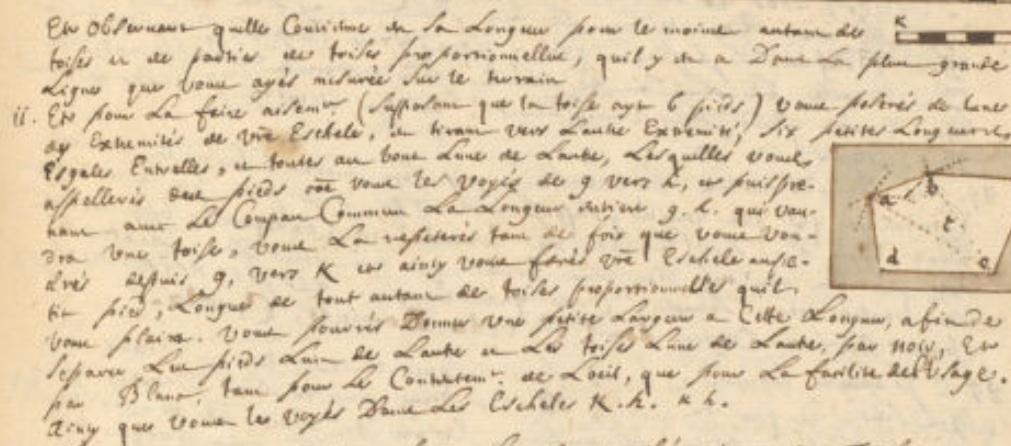 Et Observant quelle Contienne en sa Longueur pour le moins autant de
toises et de parties de toises proportionnelles, quil y en a Dans La plus grande
Ligne que vous ayés mesurée Sur le terrain
ii. Et pour La faire aisem.t (supposant que la toise ayt 6 pieds) vous poserés de lune
des Extremités de vre Eschele, en tirant vers Lautre Extremité, six petites Longueurs,
Esgales Entrelles, et toutes au bout Lune de Lautre, Lesquelles vous
appellerés des pieds coe vous les voyés de g vers h, et puis pre-
nant avec Le Compas Commun La Longueur entiere g. h. qui vau-
dra une toise, vous La repeterés tant de fois que vous vou-
drés depuis g, vers K et ainsy vous ferés vre Eschele
pied, Longue de tout autant de toises proportionnelles quil
vous plaira. vous pourrés Donner une petite Largeur a Cette Longueur, afin de
separer Les pieds Lun de Lautre et Les toises Lune de Lautre, par noir, Et
par Blanc, tant pour Le Contentem.t de Loeil, que pour La facilité de lUsage.
Ainsy que vous les voyés Dans Les Escheles K. h. K h.
K
a
b
t
d
e